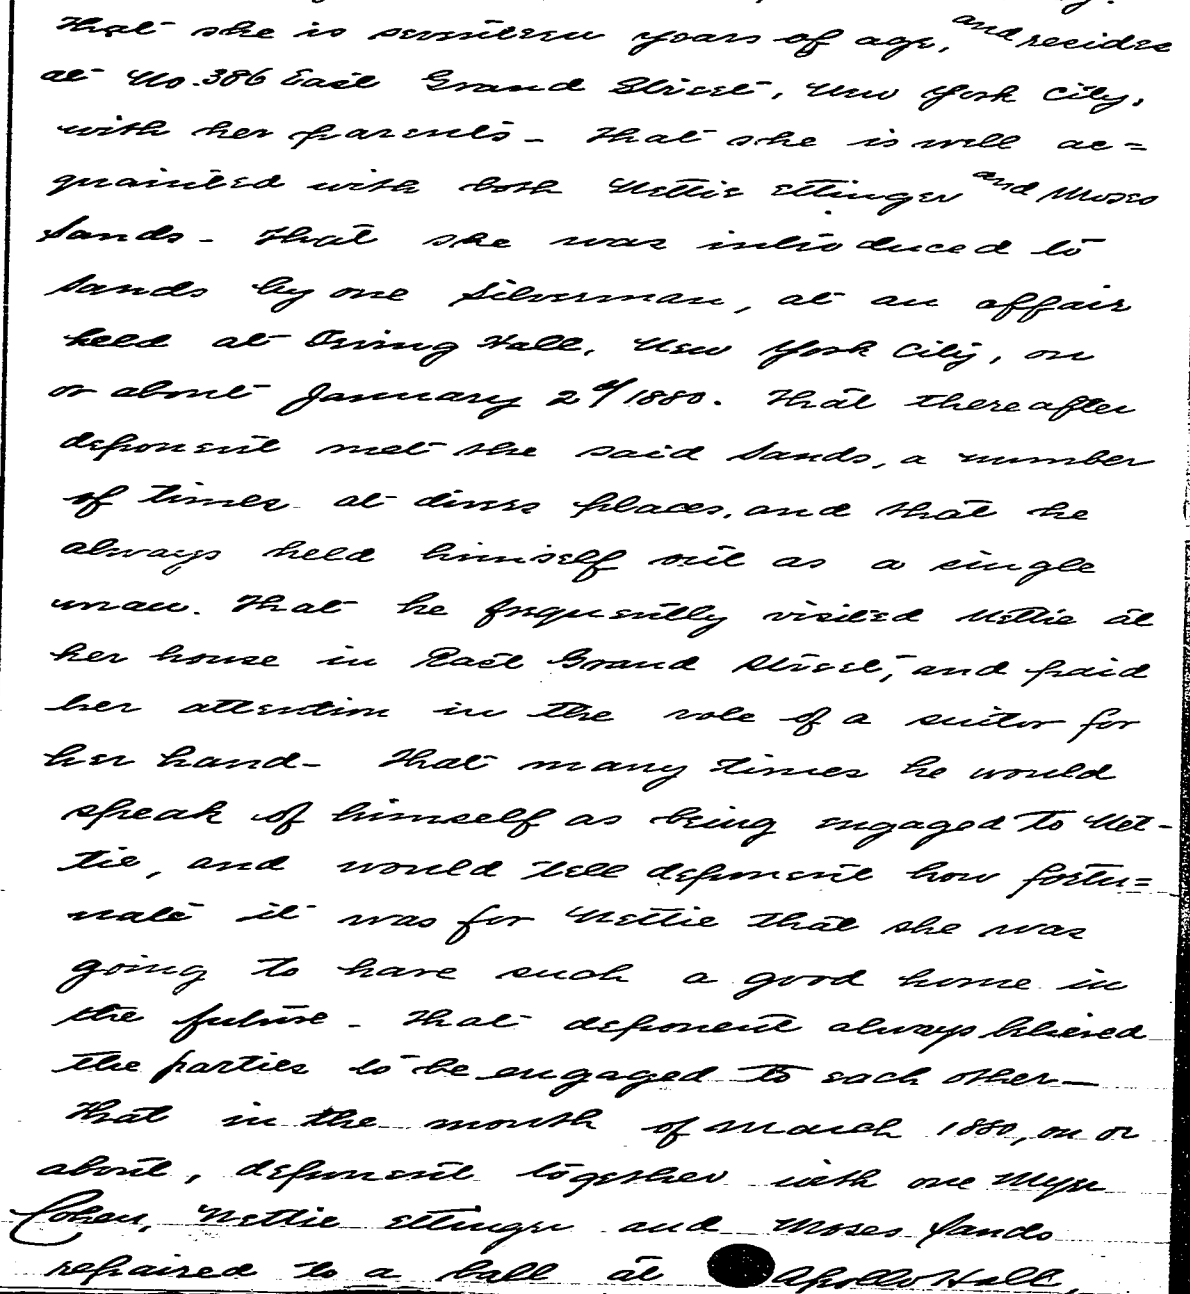 That she is seventeen years of age, and resides
at No. 386 East Grand Street, New York City,
with her parents - That she is well ac=
quainted with both Nettie Ettinger and Moses
Sands - That she was introduced to
Sands by one Silverman, at an affair
held at Irving Hall, New York City, on
or about January 2d/1880. That thereafter
deponent met the said Sands, a number
of times at divers places, and that he
always held himself out as a single
man. That he frequently visited Nettie at
her house in East Grand Street, and paid
her attention in the role of a suitor for
her hand - That many times he would
speak of himself as being engaged to Net-
tie, and would tell deponent how fortu=
nate it was for Nettie that she was
going to have such a good home in
the future - That deponent always believed
the parties to be engaged to each other -
That in the month of March 1880, on or
about, deponent together with one Myer
Cohen, Nettie Ettinger and Moses Sands
repaired to a ball at Apollo Hall,